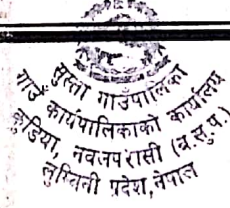 सुस्ता गाउँपालिका
गाउँ कार्यपालिकाको कार्यालय
कुडिया, नवलपरासी (ब.सु.प.)
लुम्बिनी प्रदेश, नेपाल